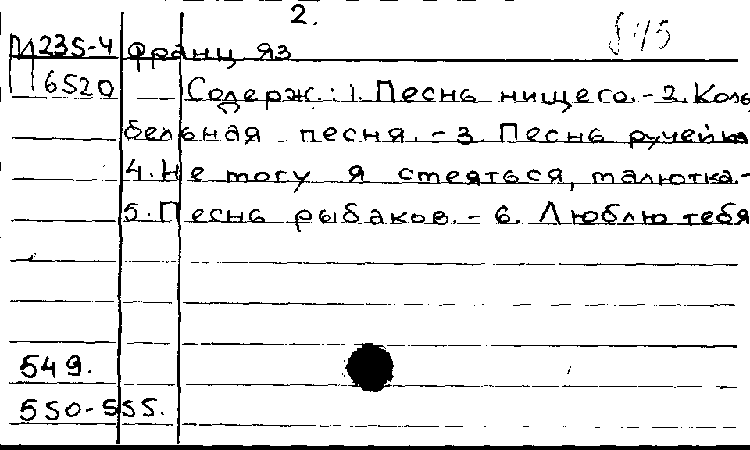 2.
М235-4 франц яз
6520 Содерж.: 1. Песнь нищего. - 2. Колы
бельная песня. - 3. Песнь ручейка
4. Не могу я смеяться, малютка. -
5. Песнь рыбаков. - 6. Люблю тебя
549.
550-555.